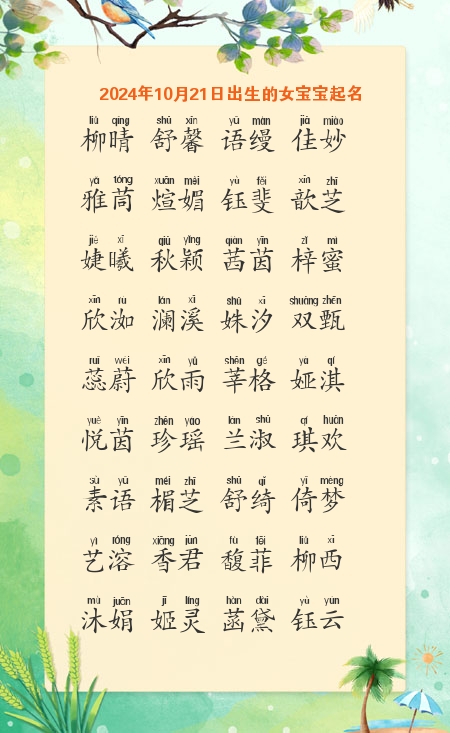 2024年10月21日出生的女宝宝起名
liǔ qíng shū xīn yǔ màn jiā miào
柳晴 舒馨 语缦 佳妙
yǎ tóng xuān mèi yù fěi xīn zhī
雅茼 煊媚 钰斐 歆芝
jié xī qiū yǐng qiàn yīn zǐ mì
婕曦 秋颖 茜茵 梓蜜
xīn rù lán xī shū xī shuāng zhēn
欣洳 澜溪 姝汐 双甄
ruǐ wei xīn yǔ shēn gé yà qí
蕊蔚 欣雨 莘格 娅淇
yuè yīn zhēn yáo lán shū qí huān
悦茵 珍瑶 兰淑 琪欢
sù yǔ méi zhī shū qǐ yǐ mèng
素语 楣芝 舒绮 倚梦
yì róng xiāng jūn fù fēi liǔ xī
艺溶 香君 馥菲 柳西
mù juān jī líng hàn dài yù yún
沐娟 姬灵 菡黛 钰云